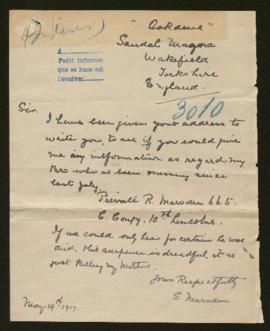 "Oakdene"
Sandal Magna
Wakefield
Yorkshire
England.
A
Pedir Informes
que se hace est
Devolver
3010
Sir,
I have been given your address to
write you, to see if you could give
me any information as regards my
Bro who as been missing since
last July,
Private R. Marsden 665.
C. Compy. 10th Lincolns.
If we could only hear for certain he was
died. this suspense is dreadful, it is
just killing my Mother.
Yours Respectfully
S Marsden
May 19th 1917.